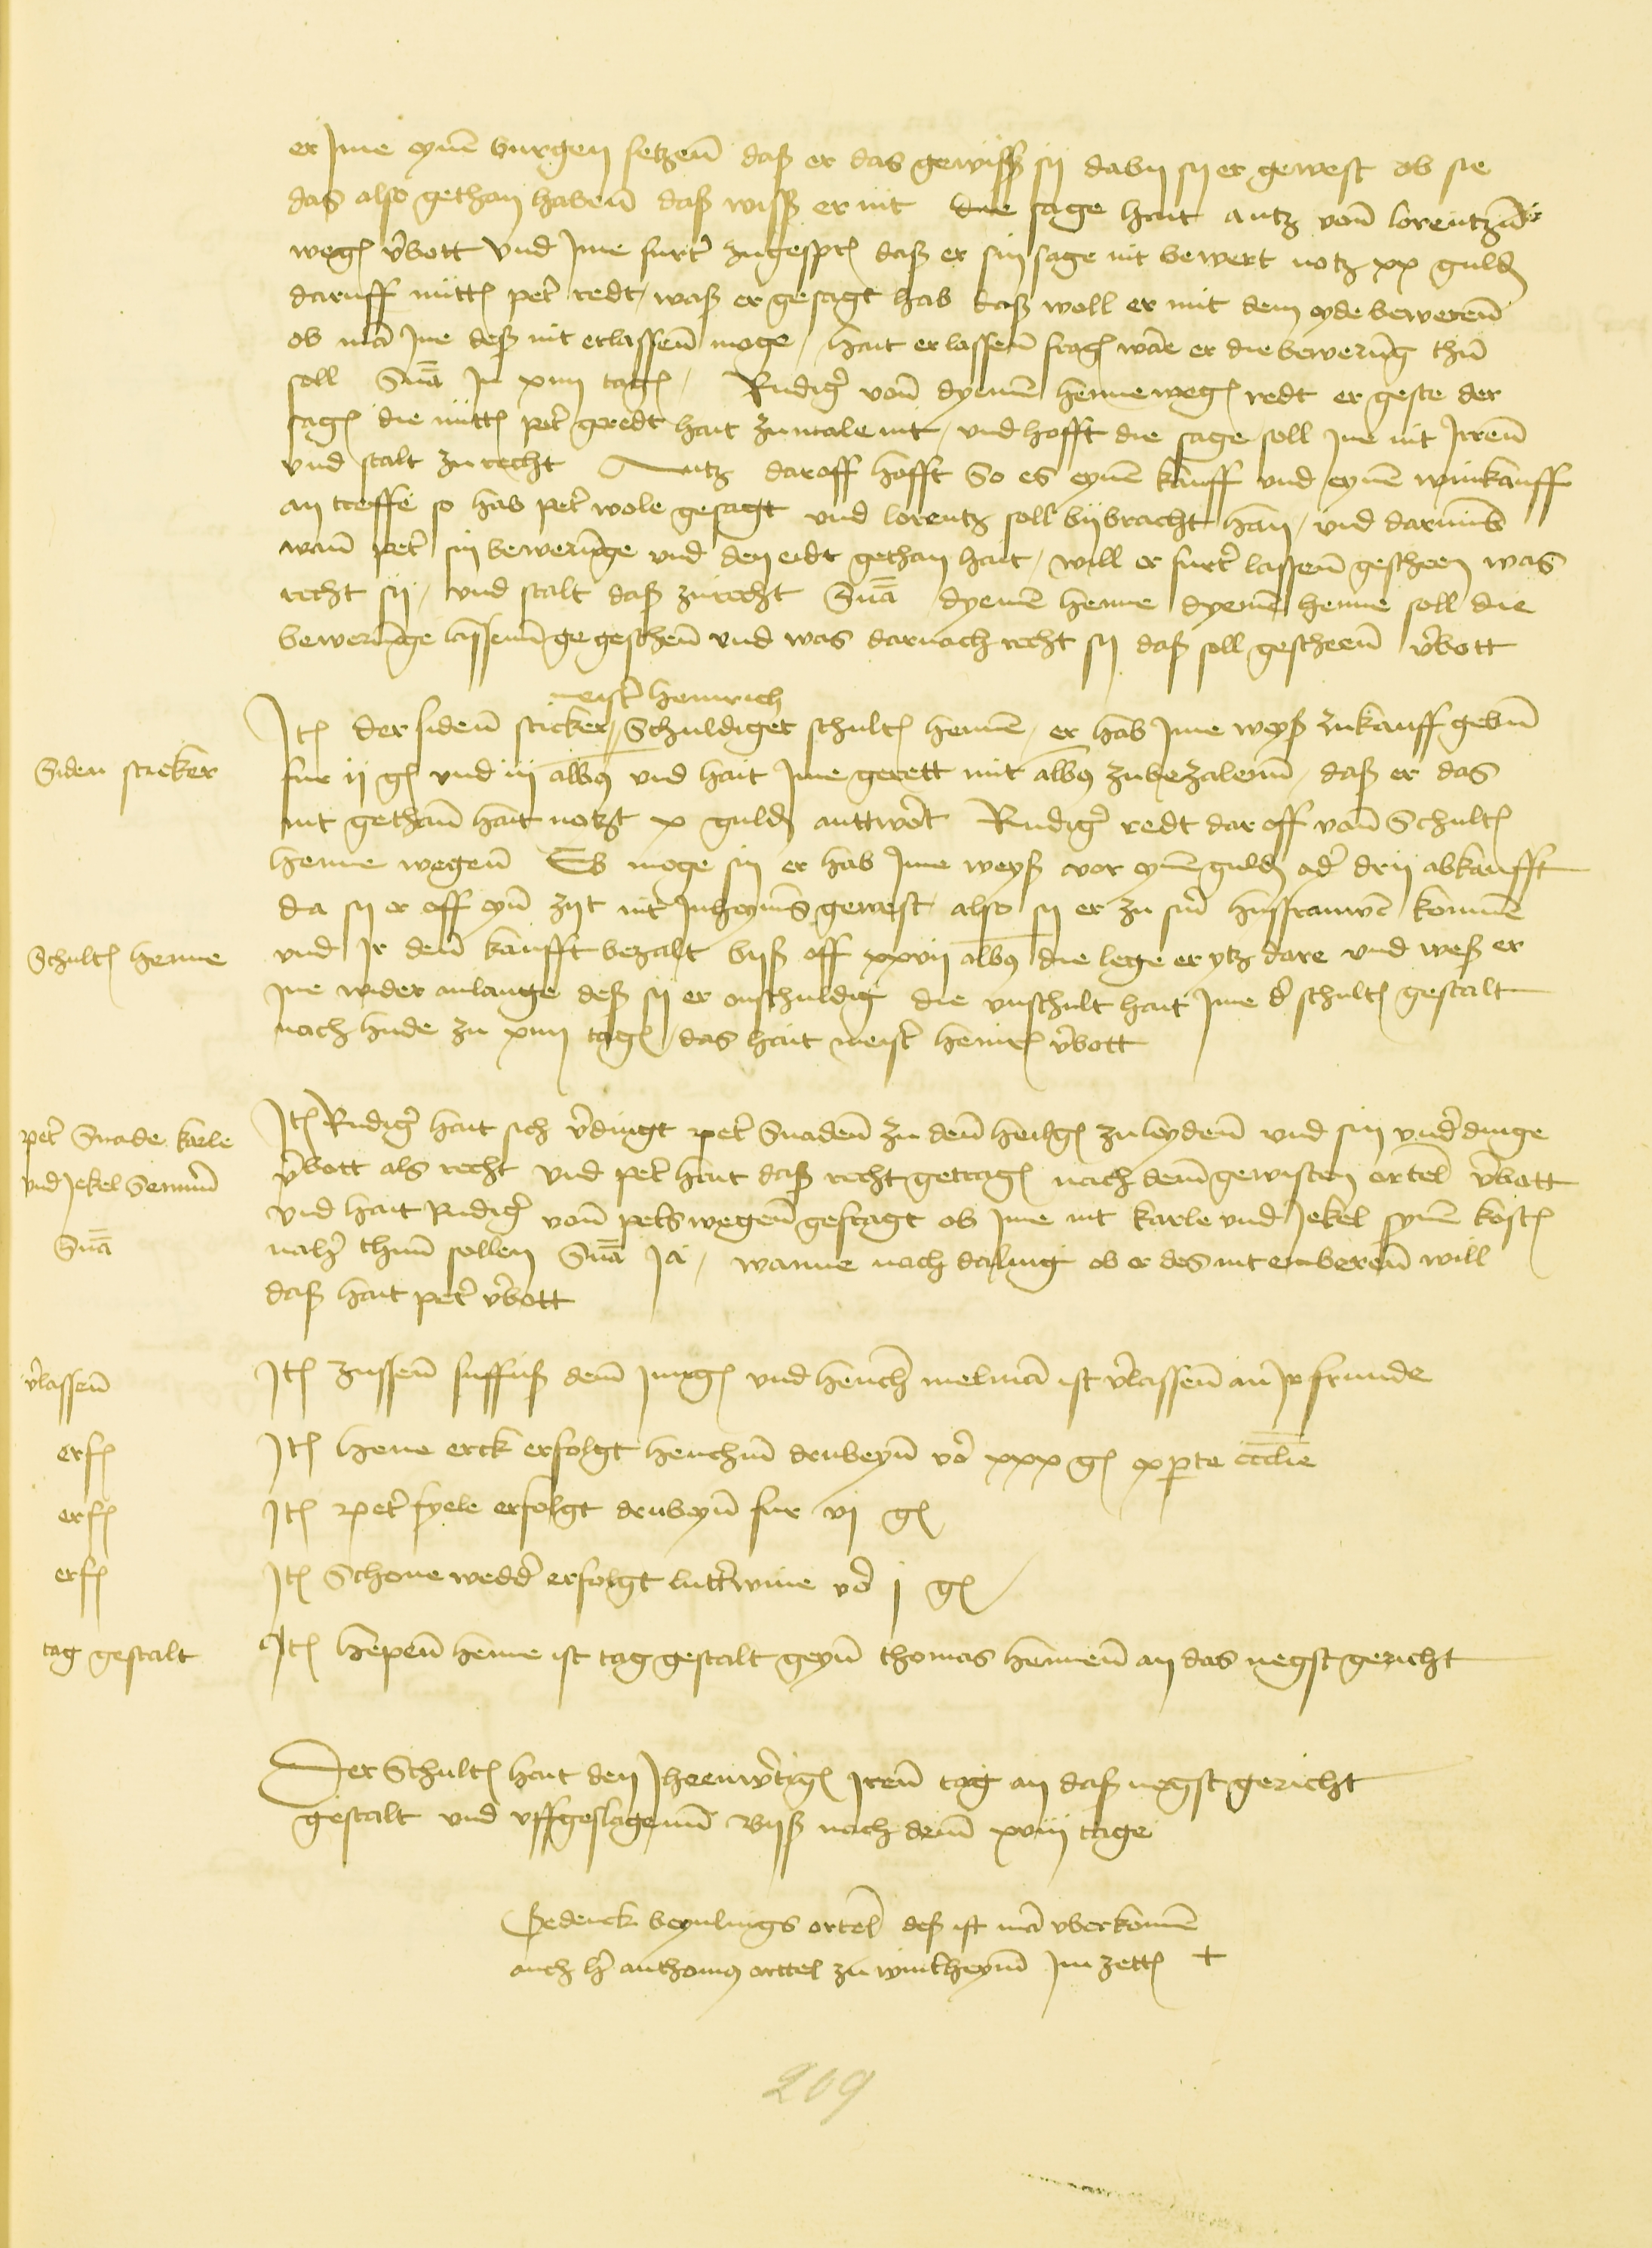 er Ime eynen burgen setzen daß er das gewiß sij dabij sij er gewest ob sie
das also gethan haben daß wiß er nit die sage hait antz von lorentzen
wegen verbott und Ime furter zugesprochen daß er sin sage nit bewert notz xx gulden
daruff peter redt, waß er gesagt hab daß woll er mit dem eyde beweren
ob man Ine deß nit erlassen moge, hait er lassen fragen wane er die bewerung thun
soll Snã In xiiii tagen, Rudiger von dyemen henne wegen redt er geste der
sagen die peter geredt hait zumale nit, und hofft die sage soll Ine nit Irren
und stalt zu recht Antz daroff hofft So es eynen kauff und eynen winkauff
an treffe so hab peter wole gesagt und lorentz soll bijbracht han, und darumb
wan peter sin beweringe und den eidt gethan hait, will er furter lassen gescheen was
recht sij, und stalt daß zurecht Snã dyemen henne dyemen henne soll die
beweringe lassen ge geschen und was darnach recht sij daß soll gescheen verbott
meister heinrich
Item der siden sticker, Schuldiget schultes hennen, er hab Ime weyß zukauff geben
Siden sticker
fur ij gulden und iij albus und hait Ime gerett mit albus zubezalenn, daß er das
nit gethan hait notzt x gulden anttwert Rudiger redt dar off von Schultes
henne wegen Es moge sin er hab Ime weyß vor eynen gulden oder drij abkaufft
da sij er off eyn zijt nit Inheymß gewest also sij er zu siner hussfrauwen kommen
Schultes henne
und Ir den kaufft bezalt biß off xxvii albus die lege er ytz dare und weß er
Ine wider anlange deß sij er onschuldig die unschult hait Ime der schultes gestalt
nach hude zu xiiii tagen, das hait meister heinrich verbott
Item Rudiger hait sich verdingt peter Snaden zu den heilgen zuleyden und sin underdinge
peter Snade karle
verbott als recht und peter hait daß recht getragen nach dem gewisten ortel verbott
und Jekel
und hait Rudiger von peters wegen gefragt ob Ime nit karle und Jekel synen kosten
Snã
thun sollen Snã Ja, wanne nach daling ob er des nit emberen will
daß hait peter verbott
verlassen
Item zussen suffuß dem Jungen und henchen melman ist verlassen an Ir frunde
erfolgt
Item henne erck erfolgt henchin drubeyn vor xxx gulden ex parte ecclesie
erfolgt
Item peter fyele erfolgt drubeyn fur vi gulden
erfolgt
Item Schonewedder erfolgt lutterwine vor j gulden
tag gestalt
Item hepen henne ist tag gestalt geyn thomas hennen an das negst gericht
Der Schultes hait den Iheenwertigen Iren tag an daß negst gericht
gestalt und uffgeslagenn biß nach dem xviij tage
Gedenck beynlings ortel deß ist man uberkommen
auch her anthonius orttel zu wintheym Im zettel +
209